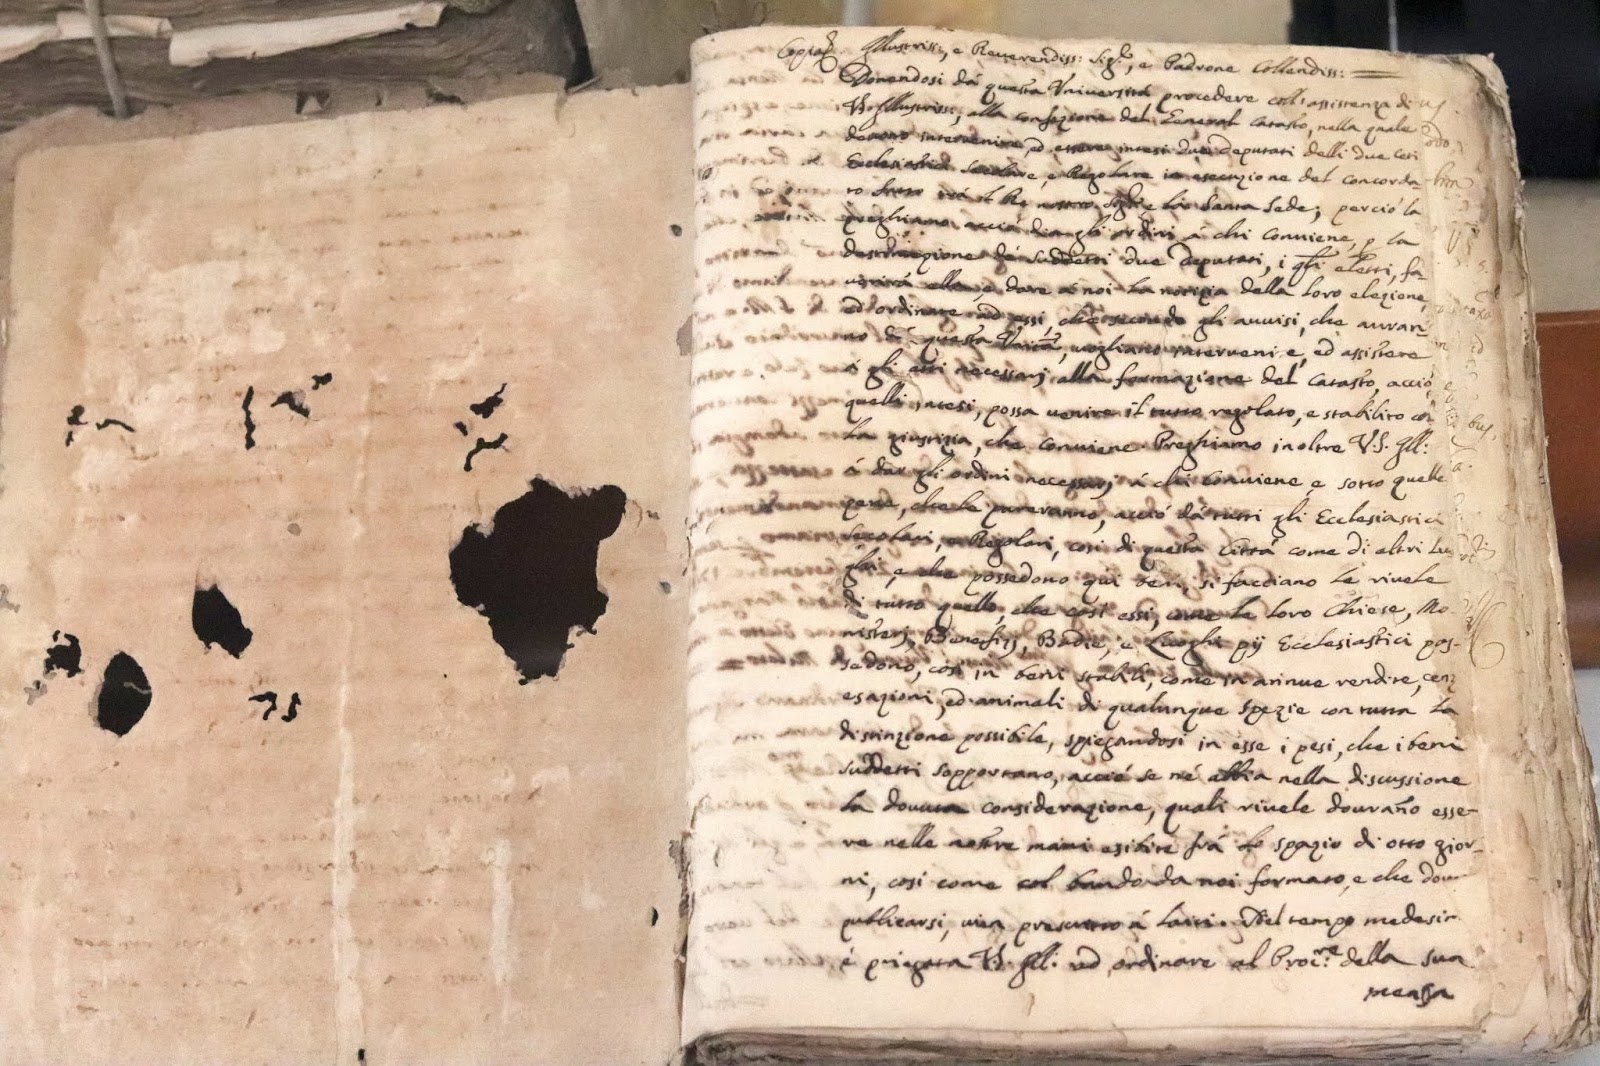 Copia Illustriss:, e Reverendiss: Sig.r, e Padrone Collendiss:
Dovendosi dà questa Università procedere coll'assistenza di
V.S. Illustriss:, alla confezione del General Catasto, nella quale
devono intervenire, ed essere intesi due Deputati delli due Ceti
Ecclesiastici Secolare, e Regolare in esecuzione del concorda-
to frà il Rè nostro Sig.re, e la Santa Sede; perciò la
preghiamo, acciò dia gli ordini à chi conviene, p la
destinazione dè suddetti due Deputati, i q̃li eletti, fa-
vorirà ella, e dare à noi la notizia della loro elezione,
ed ordinare ad essi, che secondo gli auuisi, che auran-
no dà questa Unità, vogliano intervenire, ed assistere
à gli atti necessarj alla formazione del Catasto, acciò
quelli intesi, possa venire il tutto regolato, e stabilito con
la giustizia, che conviene. Preghiamo inoltre V.S. Ill:
à dar gli ordini necessarj à chi conviene, e sotto quelle
pene, che le pareranno, acciò dà tutti gli Ecclesiastici
Secolari, e Regolari, così di questa Città come di altri Luo-
ghi, e che possedono qui beni, si facciano le rivele
di tutto quello, che così essi, come le loro Chiese, Mo-
nisterj, Beneficij, Badie, e Luoghi pij Ecclesiastici pos-
sedono, così in beni stabili, come in annue rendite,
esazioni, ed animali di qualunque spezie con tutta la
distinzione possibile, spiegandosi in esse i pesi, che i beni
suddetti sopportano, acciò se nè abbia nella discussione
la dovuta considerazione, quali rivele douranno esse-
re nelle nostre mani esibite frà lo spazio di otto gior-
ni, così come col bando da noi formato, e che dourà
publicarsi, vien prescritto à laici. Nel tempo medesimo
è priegata V.S. Ill: ad ordinare al Proc.re della sua
mensa